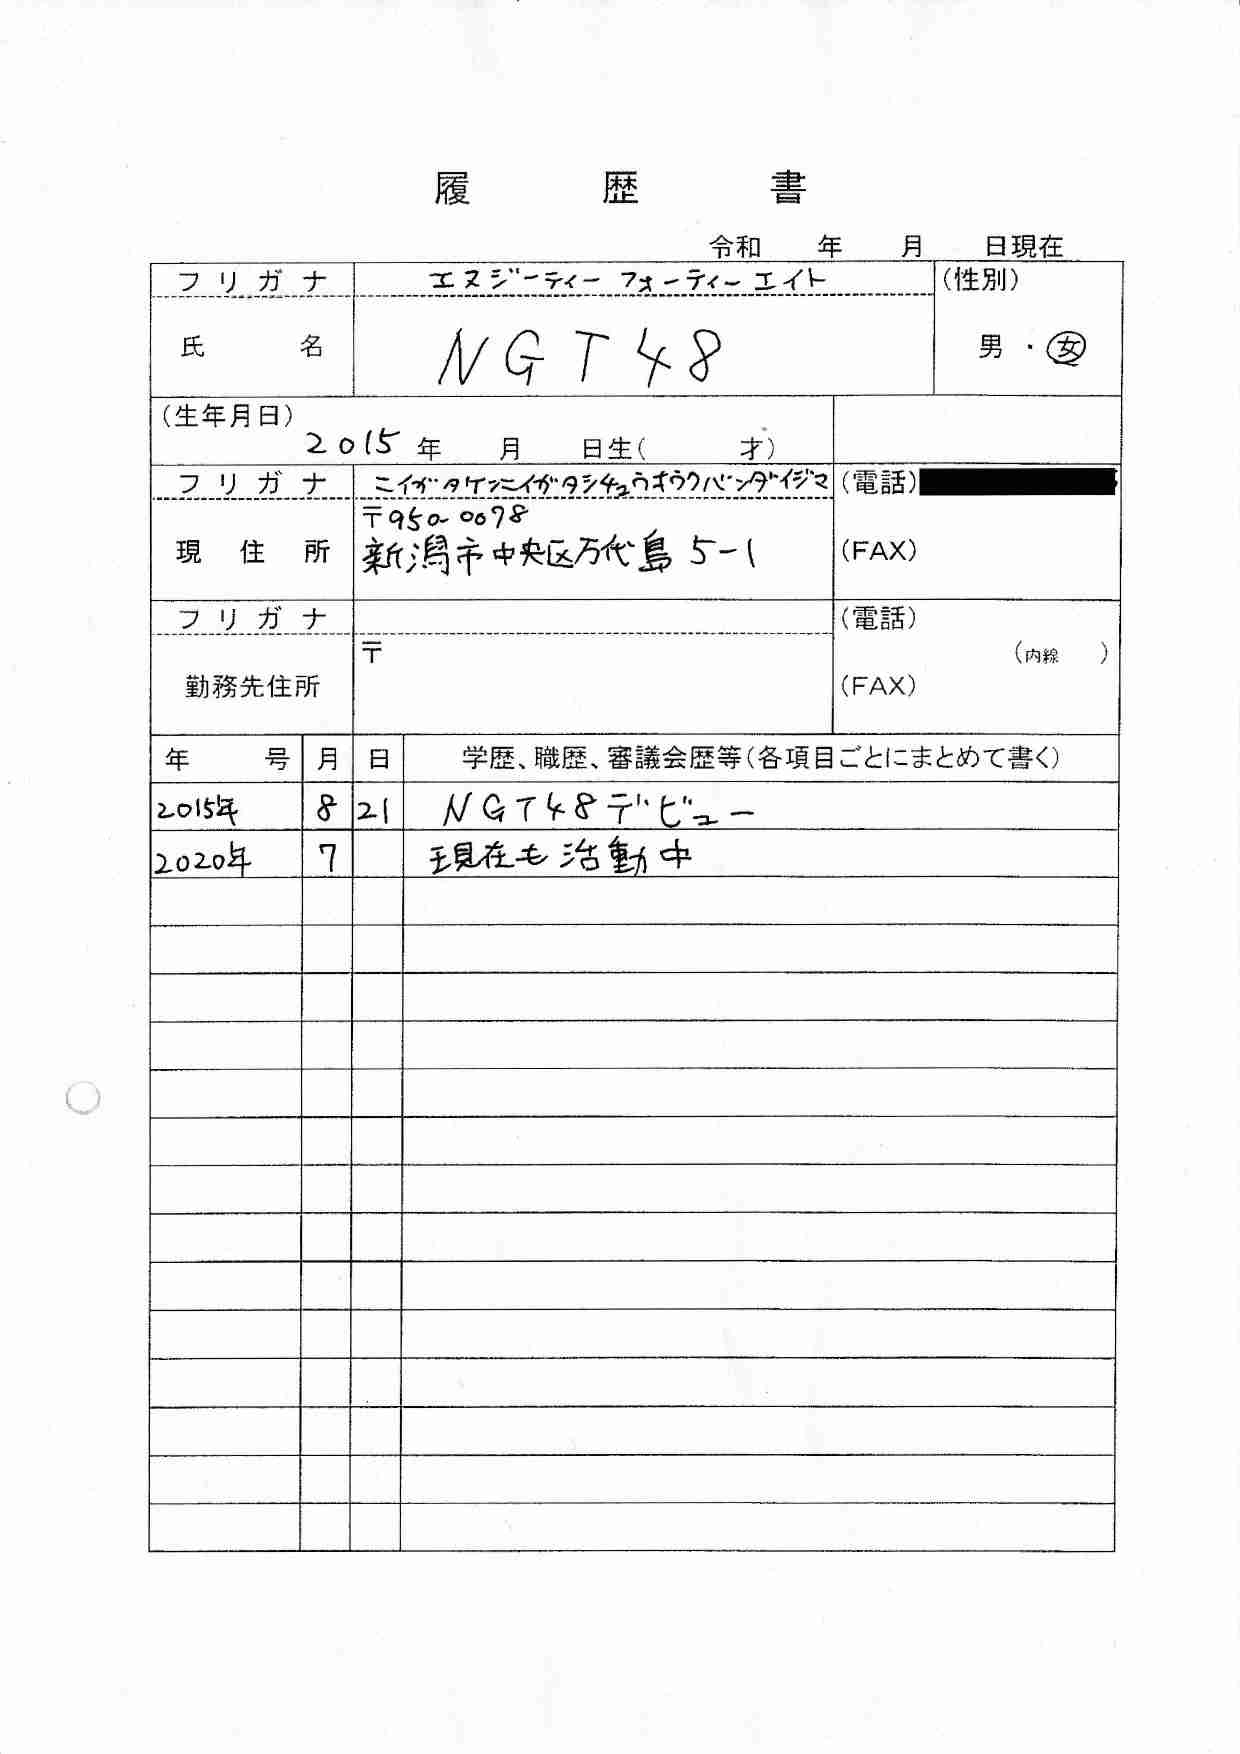 履歴書
令和 年 月 日現在
フリガナ エヌジーティー フォーティーエイト (性別)
氏名 NGT48 男・女
(生年月日)
2015年 月 日生( 才)
フリガナ ニイガタケンニイガタシチュウオウクバンダイジマ (電話)
〒950-0078
現住所 新潟市中央区万代島5-1 (FAX)
フリガナ (電話)
〒 (内線 )
勤務先住所 (FAX)
年号 月 日 学歴、職歴、審議会歴等(各項目ごとにまとめて書く)
2015年 8 21 NGT48デビュー
2020年 7 現在も活動中